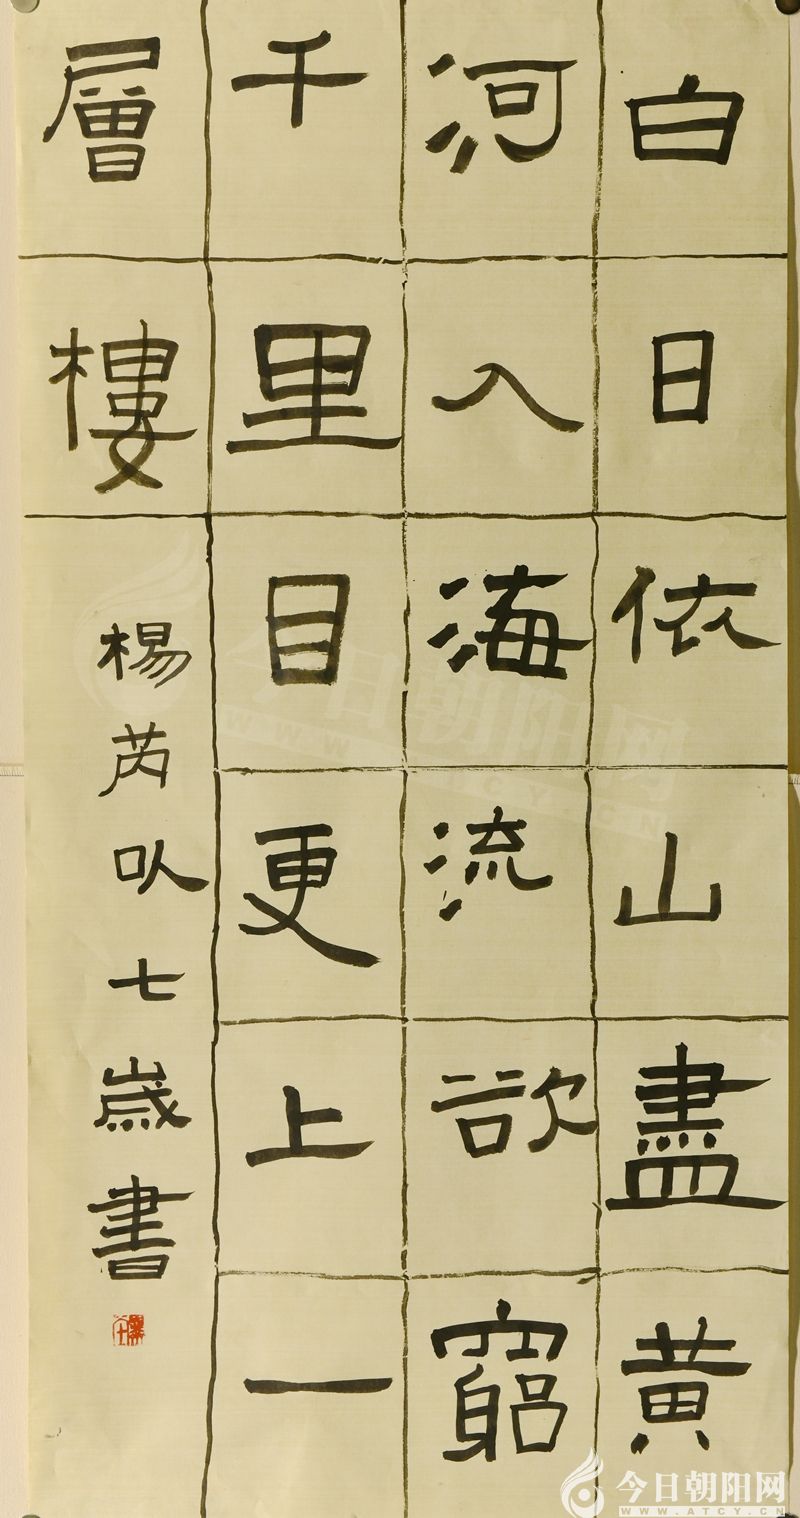 白日依山盡黃
河入海流欲窮
千里目更上一
層樓
楊芮七歲書
今日朝阳网
WWW.ATCY.CN
今日朝阳网
WWW.ATCY.CN